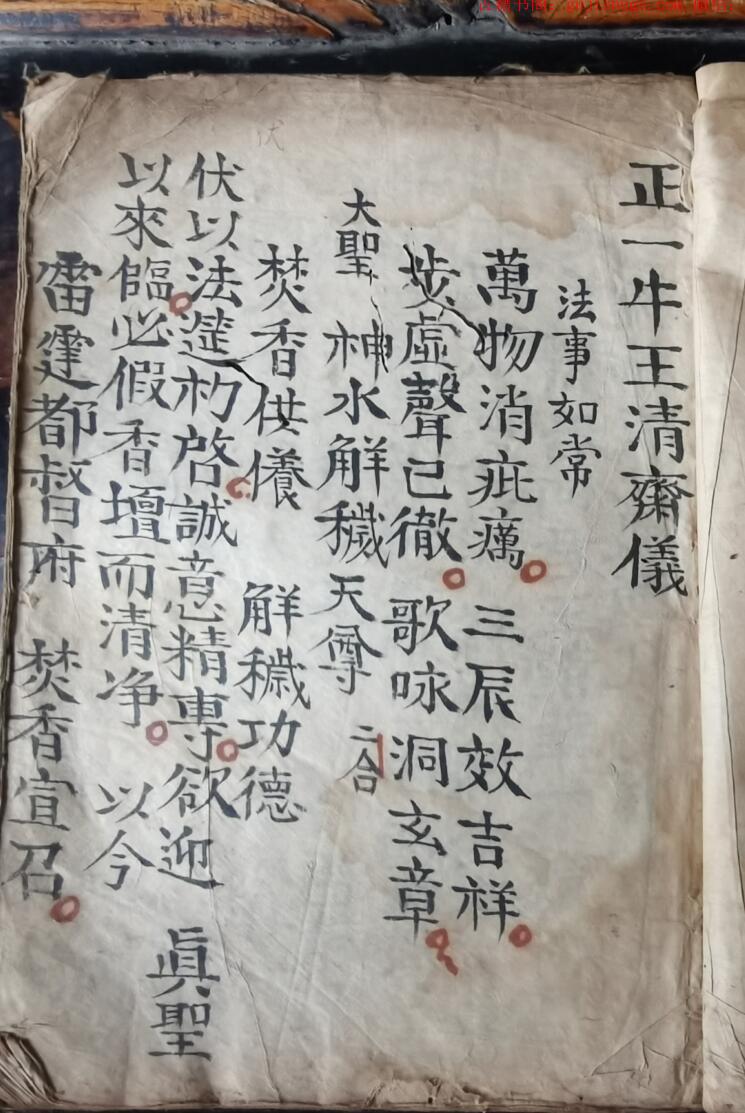 正一牛王清齋儀
法事如常
萬物消疵癘 三辰效吉祥
步虛聲已徹 歌咏洞玄章
大聖 神水解穢天尊 二合
焚香供養 解穢功德
伏以法筵初啓誠意精專欲迎 眞聖
以來臨必假香壇而清净 以今
雷霆都督府 焚香宣召